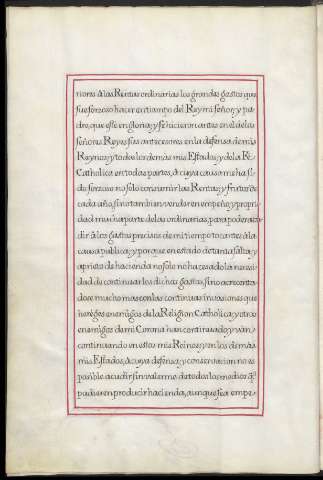 nores a las Rentas ordinarias los grandes gastos que
fue forzoso hacer en tiempo del Rey mi señor, y pa
dre, que esté en gloria; y se hicieron antes en el de los
señores Reyes sus antecesores en la defensa de mis
Reynos, y todos los demas mis Estados, y de la Fé
Catholica en todas partes, á cuya causa me ha si
do forzoso no solo consumir las Rentas, y frutos de
cada año, sino tambien vender en empeño, y propri
dad mucha parte de las ordinarias, para poder acu
dir á los gastos precisos de mi tiempo tocantes á la
causa publica; y porque en estado de tanta falta, y
aprieto de hacienda no solo no ha cesado la necesi
dad de continuar los dichos gastos, sino acrecenta
dose mucho mas con las continuas invasiones que
hereges enemigos de la Religion Catholica, y otros
enemigos de mi Corona han continuado, y van
continuando en estos mis Reinos, y en los demas
mis Estados, á cuya defensa, y conservacion no es
posible acudir sin valerme de todos los medios q.
puedan producir hacienda, aunque sea empe